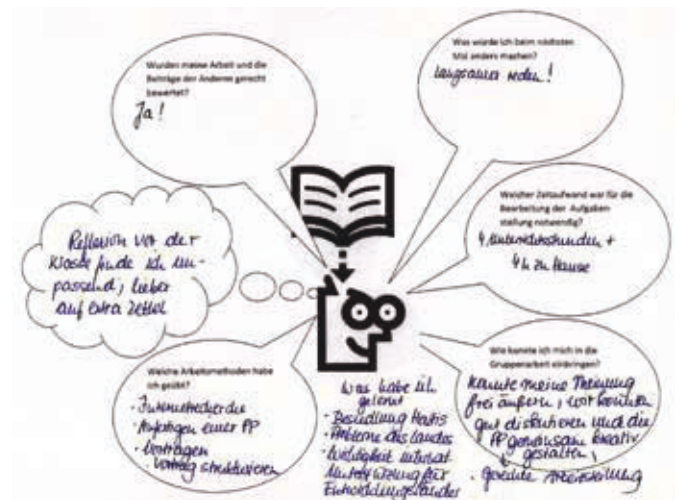 Wurden meine Arbeit und die
Beiträge der Anderen gerecht
bewertet?
Ja!
Was würde ich beim nächsten
Mal anders machen?
Langsamer reden!
Reflexion vor der
Klasse finde ich un-
passend, lieber
auf extra Zettel
Welcher Zeitaufwand war für die
Bearbeitung der Aufgaben-
stellung notwendig?
4 Unterrichtsstunden +
4h zu Hause
Welche Arbeitsmethoden habe
ich geübt?
· Internetrecherche
· Anfertigen einer PP
· Vortragen
· Vortrag strukturieren
Was habe ich
gelernt
· Besiedlung Haitis
· Probleme des Landes
· Wichtigkeit internat.
Unterstützung für
Entwicklungsländer
Wie konnte ich mich in die
Gruppenarbeit einbringen?
konnte meine Meinung
frei äußern, wir konnten
gut diskutieren und die
PP gemeinsam kreativ
gestalten,
gerechte Arbeitsteilung